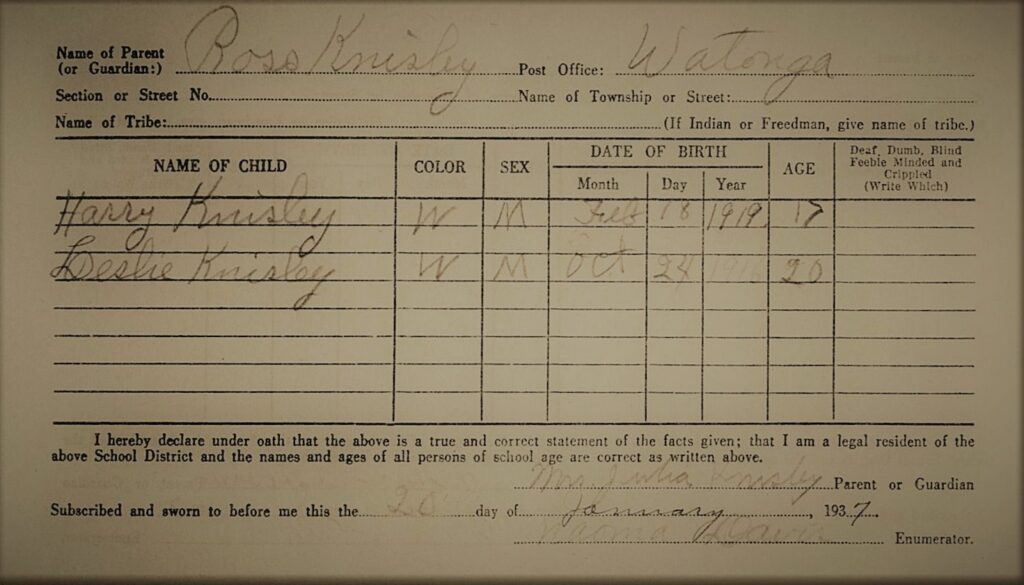 Name of Parent
(or Guardian:) Ross Knisley Post Office: Watonga
Section or Street No. Name of Township or Street:
Name of Tribe: (If Indian or Freedman, give name of tribe.)
NAME OF CHILD COLOR SEX DATE OF BIRTH Month Day Year AGE Deaf, Dumb, Blind Feeble Minded and Crippled (Write Which)
Harry Knisley W M Feb 18 1919 17
Leslie Knisley W M Oct 24 1916 20
I hereby declare under oath that the above is a true and correct statement of the facts given; that I am a legal resident of the
above School District and the names and ages of all persons of school age are correct as written above.
Mrs Julia Knisley Parent or Guardian
Subscribed and sworn to before me this the 20 day of January, 1937.
Davis Enumerator.